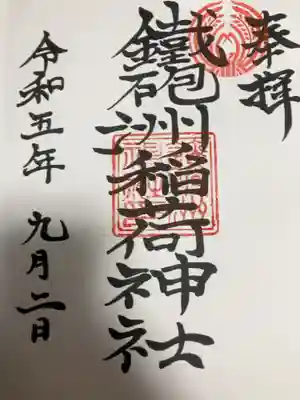 奉拝
鐵砲洲稲荷神社
令和五年 九月二日